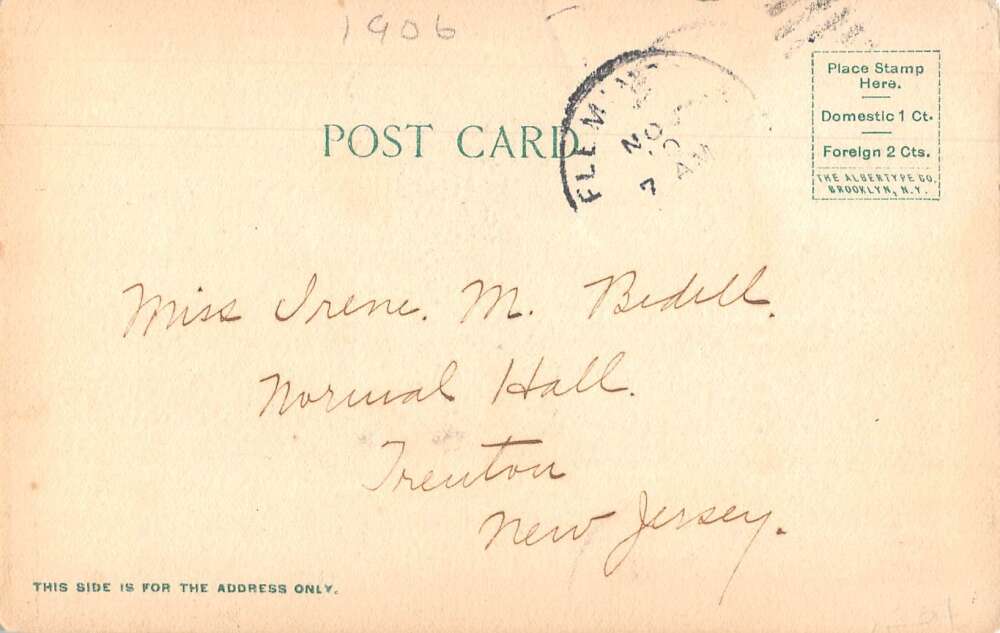 1906
POST CARD
FLEMIN
NO
7 AM
Place Stamp
Here.
Domestic 1 Ct.
Foreign 2 Cts.
THE ALBERTYPE CO.
BROOKLYN, N.Y.
Miss Irene. M. Bedell.
Normal Hall.
Trenton
New Jersey.
THIS SIDE IS FOR THE ADDRESS ONLY.